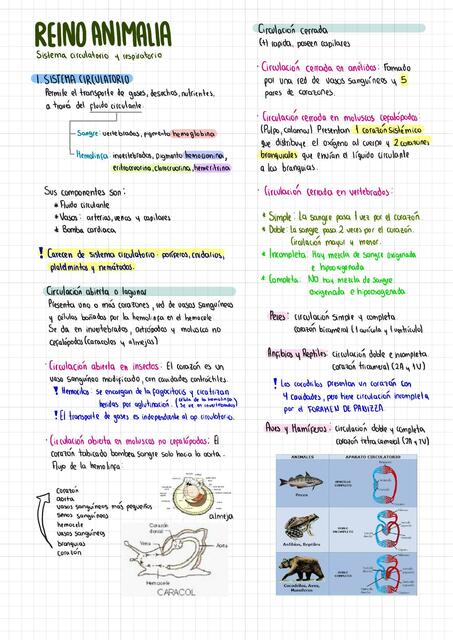 REINO ANIMALIA
Sistema circulatorio y respiratorio
1. SISTEMA CIRCULATORIO
Permite el transporte de gases, desechos, nutrientes,
a través del fluido circulante.
Sangre: vertebrados, pigmento hemoglobina
Hemolinfa: invertebrados, pigmento hemocianina,
eritrocruorina, clorocruorina, hemeritrina
Sus componentes son:
* Fluido circulante
* Vasos: arterias, venas y capilares
* Bomba cardiaca
! Carecen de sistema circulatorio: poríferos, cnidarios,
platelmintos y nemátodos.
Circulación abierta o lagunar
Presenta uno o más corazones, red de vasos sanguíneos
y células bañadas por la hemolinfa en el hemocele
Se da en invertebrados, artrópodos y moluscos no
cefalópodos (caracoles y almejas)
· Circulación abierta en insectos: El corazón es un
vaso sanguíneo modificado, con cavidades contráctiles.
! Hemocitos: se encargan de la fagocitosis y cicatrizan
heridas por aglutinación.
! El transporte de gases es independiente al ap. circulatorio.
· Circulación abierta en moluscos no cefalópodos: El
corazón tabicado bombea sangre solo hacia la aorta.
Flujo de la hemolinfa:
corazón
aorta
vasos sanguíneos más pequeños
senos sanguíneos
hemocele
vasos sanguíneos
branquias
corazón
almeja
Corazón
dorsal
Vena
Aorta
Hemocele
CARACOL
Circulación cerrada
(+) rápida, poseen capilares
· Circulación cerrada en anélidos: Formado
por una red de vasos sanguíneos y 5
pares de corazones.
· Circulación cerrada en moluscos cefalópodos:
(Pulpo, calamar) Presentan 1 corazón sistémico
que distribuye el oxígeno al cuerpo y 2 corazones
branquiales que envían el líquido circulante
a las branquias.
· Circulación cerrada en vertebrados:
* Simple: La sangre pasa 1 vez por el corazón.
* Doble: La sangre pasa 2 veces por el corazón.
Circulación mayor y menor.
* Incompleta: Hay mezcla de sangre oxigenada
e hipooxigenada
* Completa: NO hay mezcla de sangre
oxigenada e hipooxigenada
Peces: circulación simple y completa
corazón bicameral (1 aurícula y 1 ventrículo)
Anfibios y Reptiles: circulación doble e incompleta
corazón tricameral (2A y 1V)
! Los cocodrilos presentan un corazón con
4 cavidades, pero tiene circulación incompleta
por el FORAMEN DE PANIZZA
Aves y Mamíferos: circulación doble y completa
corazón tetracameral (2A y 2V)
ANIMALES
APARATO CIRCULATORIO
Peces
SENCILLO
COMPLETO
Anfibios, Reptiles
DOBLE
INCOMPLETO
Cocodrilos, Aves,
Mamíferos
DOBLE
COMPLETO